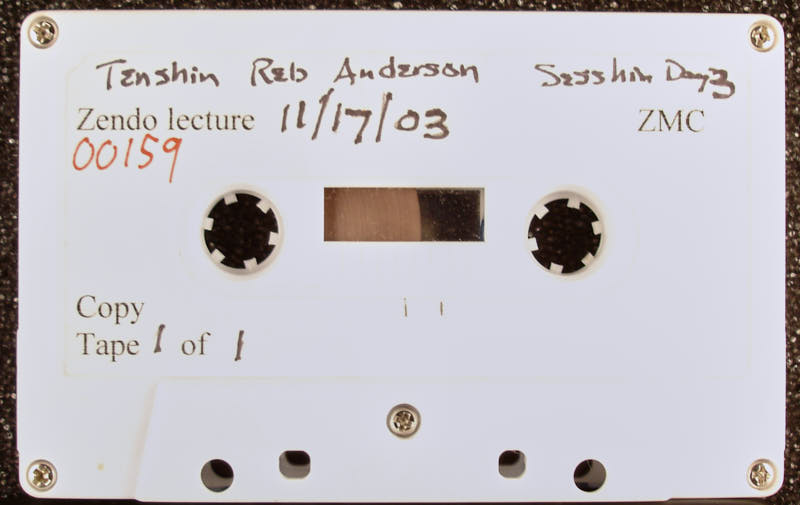 Tenshin Reb Anderson Sesshin Day 3
Zendo lecture 11/17/03 ZMC
00159
Copy
Tape 1 of 1